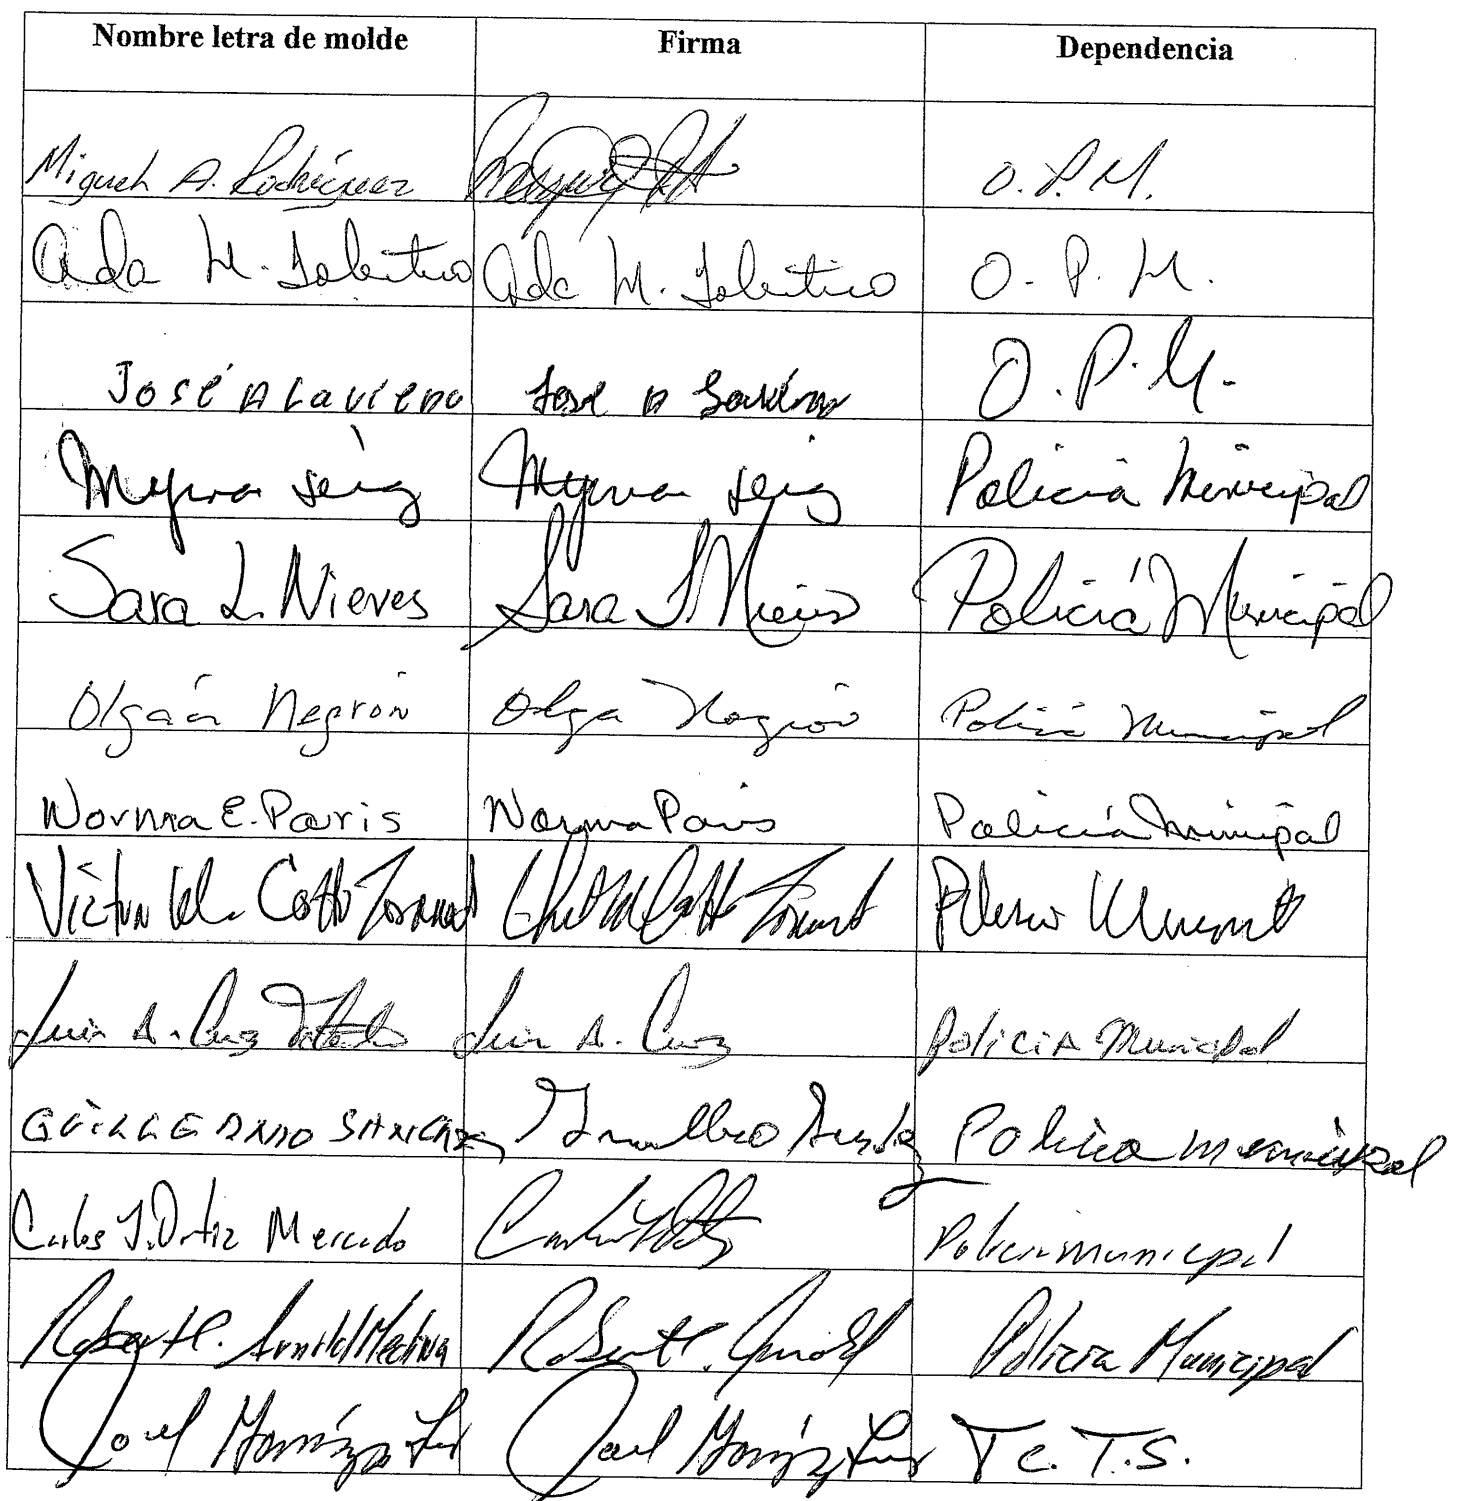 Nombre letra de molde Firma Dependencia
Miguel A. Rodríguez O.P.M.
Ada M. Tolentino Ada M. Tolentino O.P.M.
José A Laviena Jose A Laviena O.P.M.
Myrna Myrna Policia Municipal
Sara L. Nieves Sara L. Nieves Policiá Municipal
Olga Negrón Olga Negrón Policia Municipal
Norma E. Paris Norma Paris Policía Municipal
Victor M. Cotto
Luis A. Cruz Luis A. Cruz Policia Municipal
GUILLERMO SANCHEZ Policia municipal
Carlos J. Ortiz Mercado Policia municipal
Robert C. Arnold Medina Robert C. Arnold Policia Municipal
Joel Joel T.C.T.S.